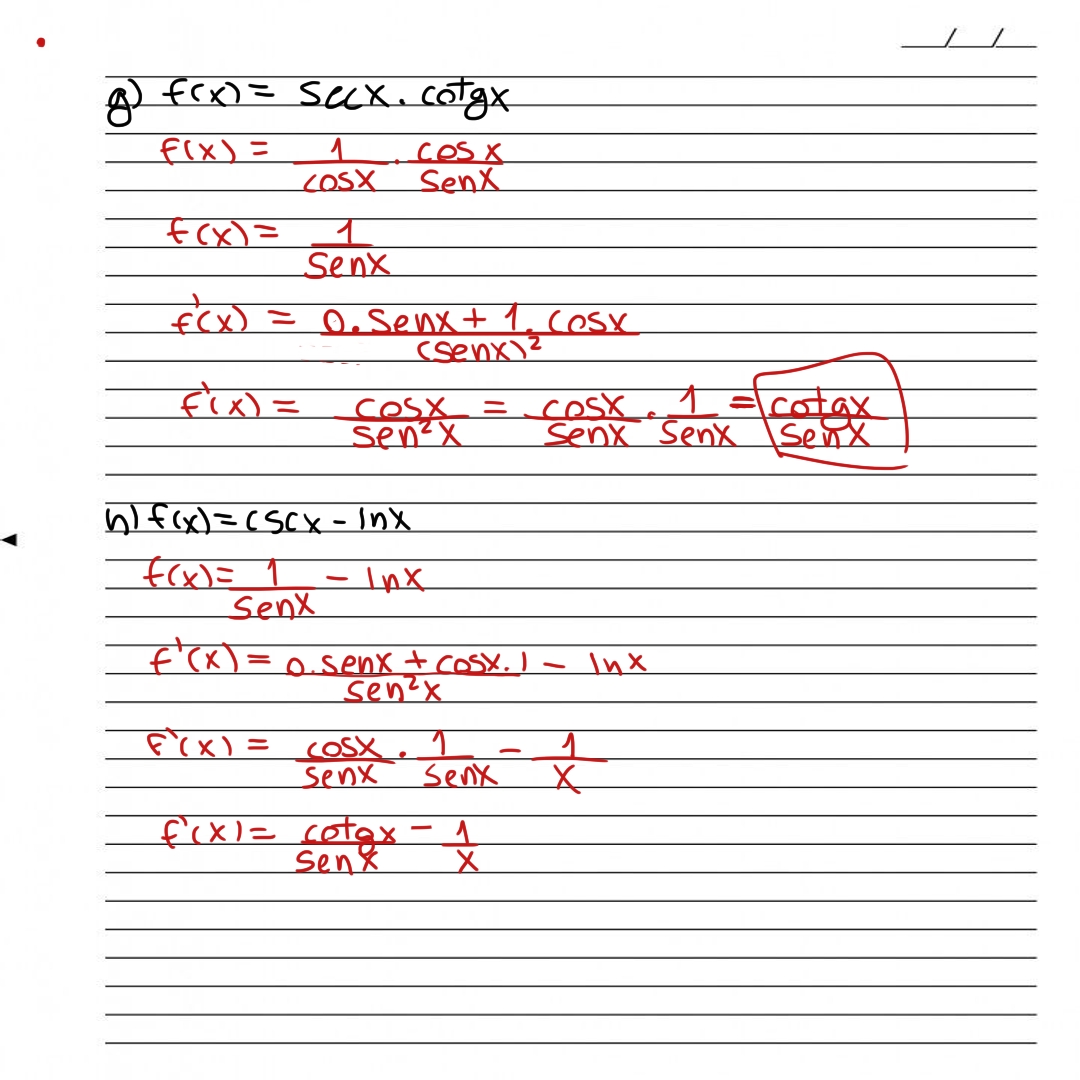 __/__/__
g) f(x) = secx . cotgx
f(x) = 1/cosx . cosx/senx
f(x) = 1/senx
f'(x) = 0.senx + 1.cosx/(senx)²
f'(x) = cosx/sen²x = cosx/senx . 1/senx = cotgx/senx
h) f(x) = cscx - lnx
f(x) = 1/senx - lnx
f'(x) = 0.senx + cosx.1/sen²x - lnx
f'(x) = cosx/senx . 1/senx - 1/x
f'(x) = cotgx/senx - 1/x